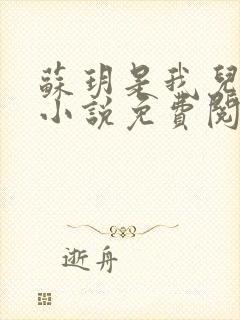 蘇玥是我兒
小說免費閱
逝舟